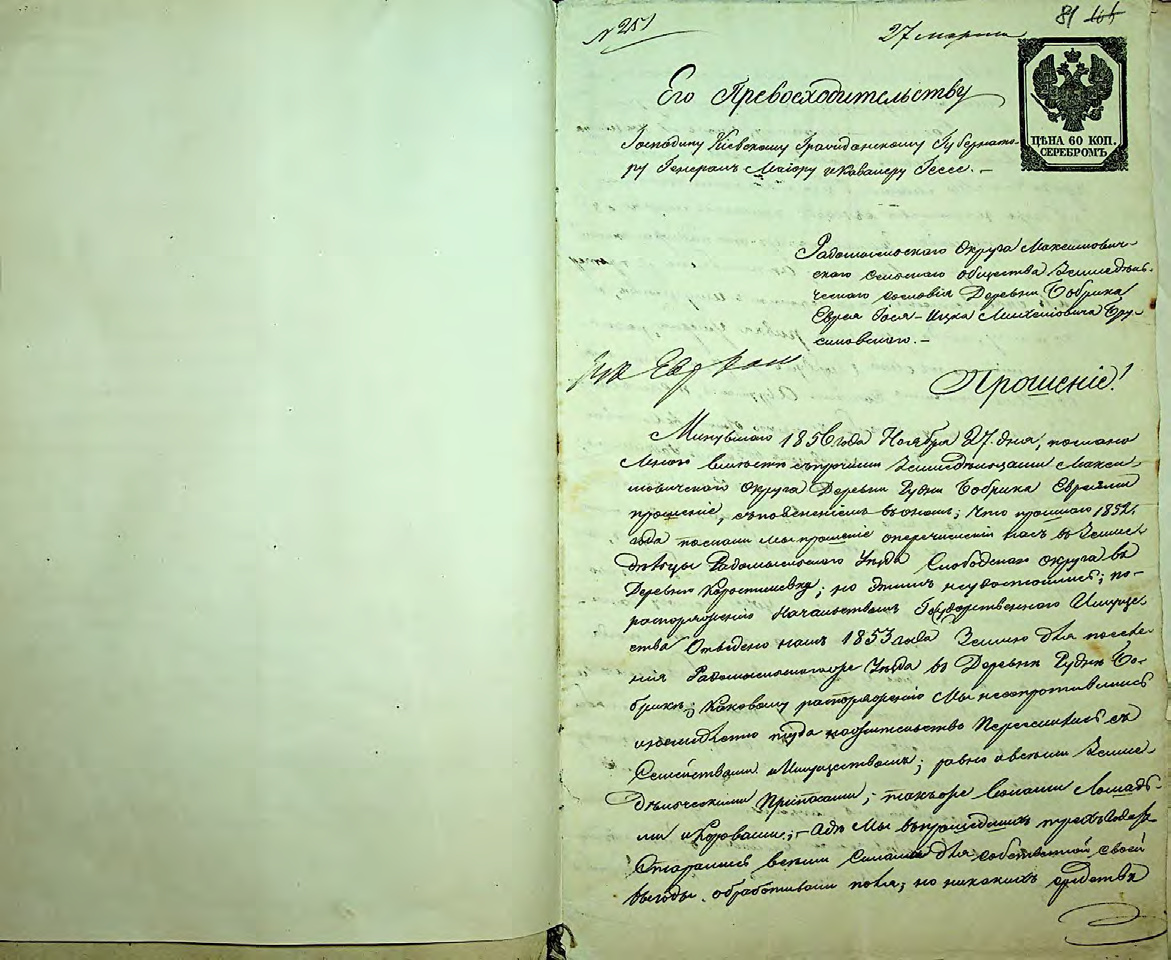 № 251
27 марта
81
Его Превосходительству
ЦѢНА 60 КОП.
СЕРЕБРОМЪ
Господину Кіевскому Гражданскому Губернато-
ру Генералъ Маіору и Кавалеру Гессе. —
Радомысльскаго Округа Максимович-
скаго Сельскаго общества Земледѣль-
ческаго сословія Деревни Бобрика
Еврея Іося-Ицка Михелевича Бру-
силовскаго. —
Прошеніе!
Минувшаго 1856 года Ноября 27 дня, послано
Мною вмѣстѣ съ прочими Земледѣльцами Макси-
мовичскаго Округа Деревни Рудни Бобрика Евреями
прошеніе, въ ономъ; Что прошлаго 1852
года послали мы прошеніе о перечисленіи насъ въ Земле-
дѣльцы Радомысльскаго Уѣзда Слободскаго Округа въ
Деревню Коростишевку; но этимъ неудостоились; по
распоряженію Начальствомъ Государственного Имуще-
ства Отведено намъ 1853 года Землю для поселе-
нія Радомысльскаго же Уѣзда въ Деревни Рудни Бо-
брикъ; Каковому распоряженію Мы несопротивлялись
туда на жительство Переселились съ
Семействами и Имуществомъ; равно и всеми Земле-
дѣльческими Припасами; также Волами Лошадь-
ми и Коровами; — Мы въ прошедшихъ трехъ годахъ
Старались всеми Силами для собственной своей
выгоды обработывали поля; но никакихъ средствъ